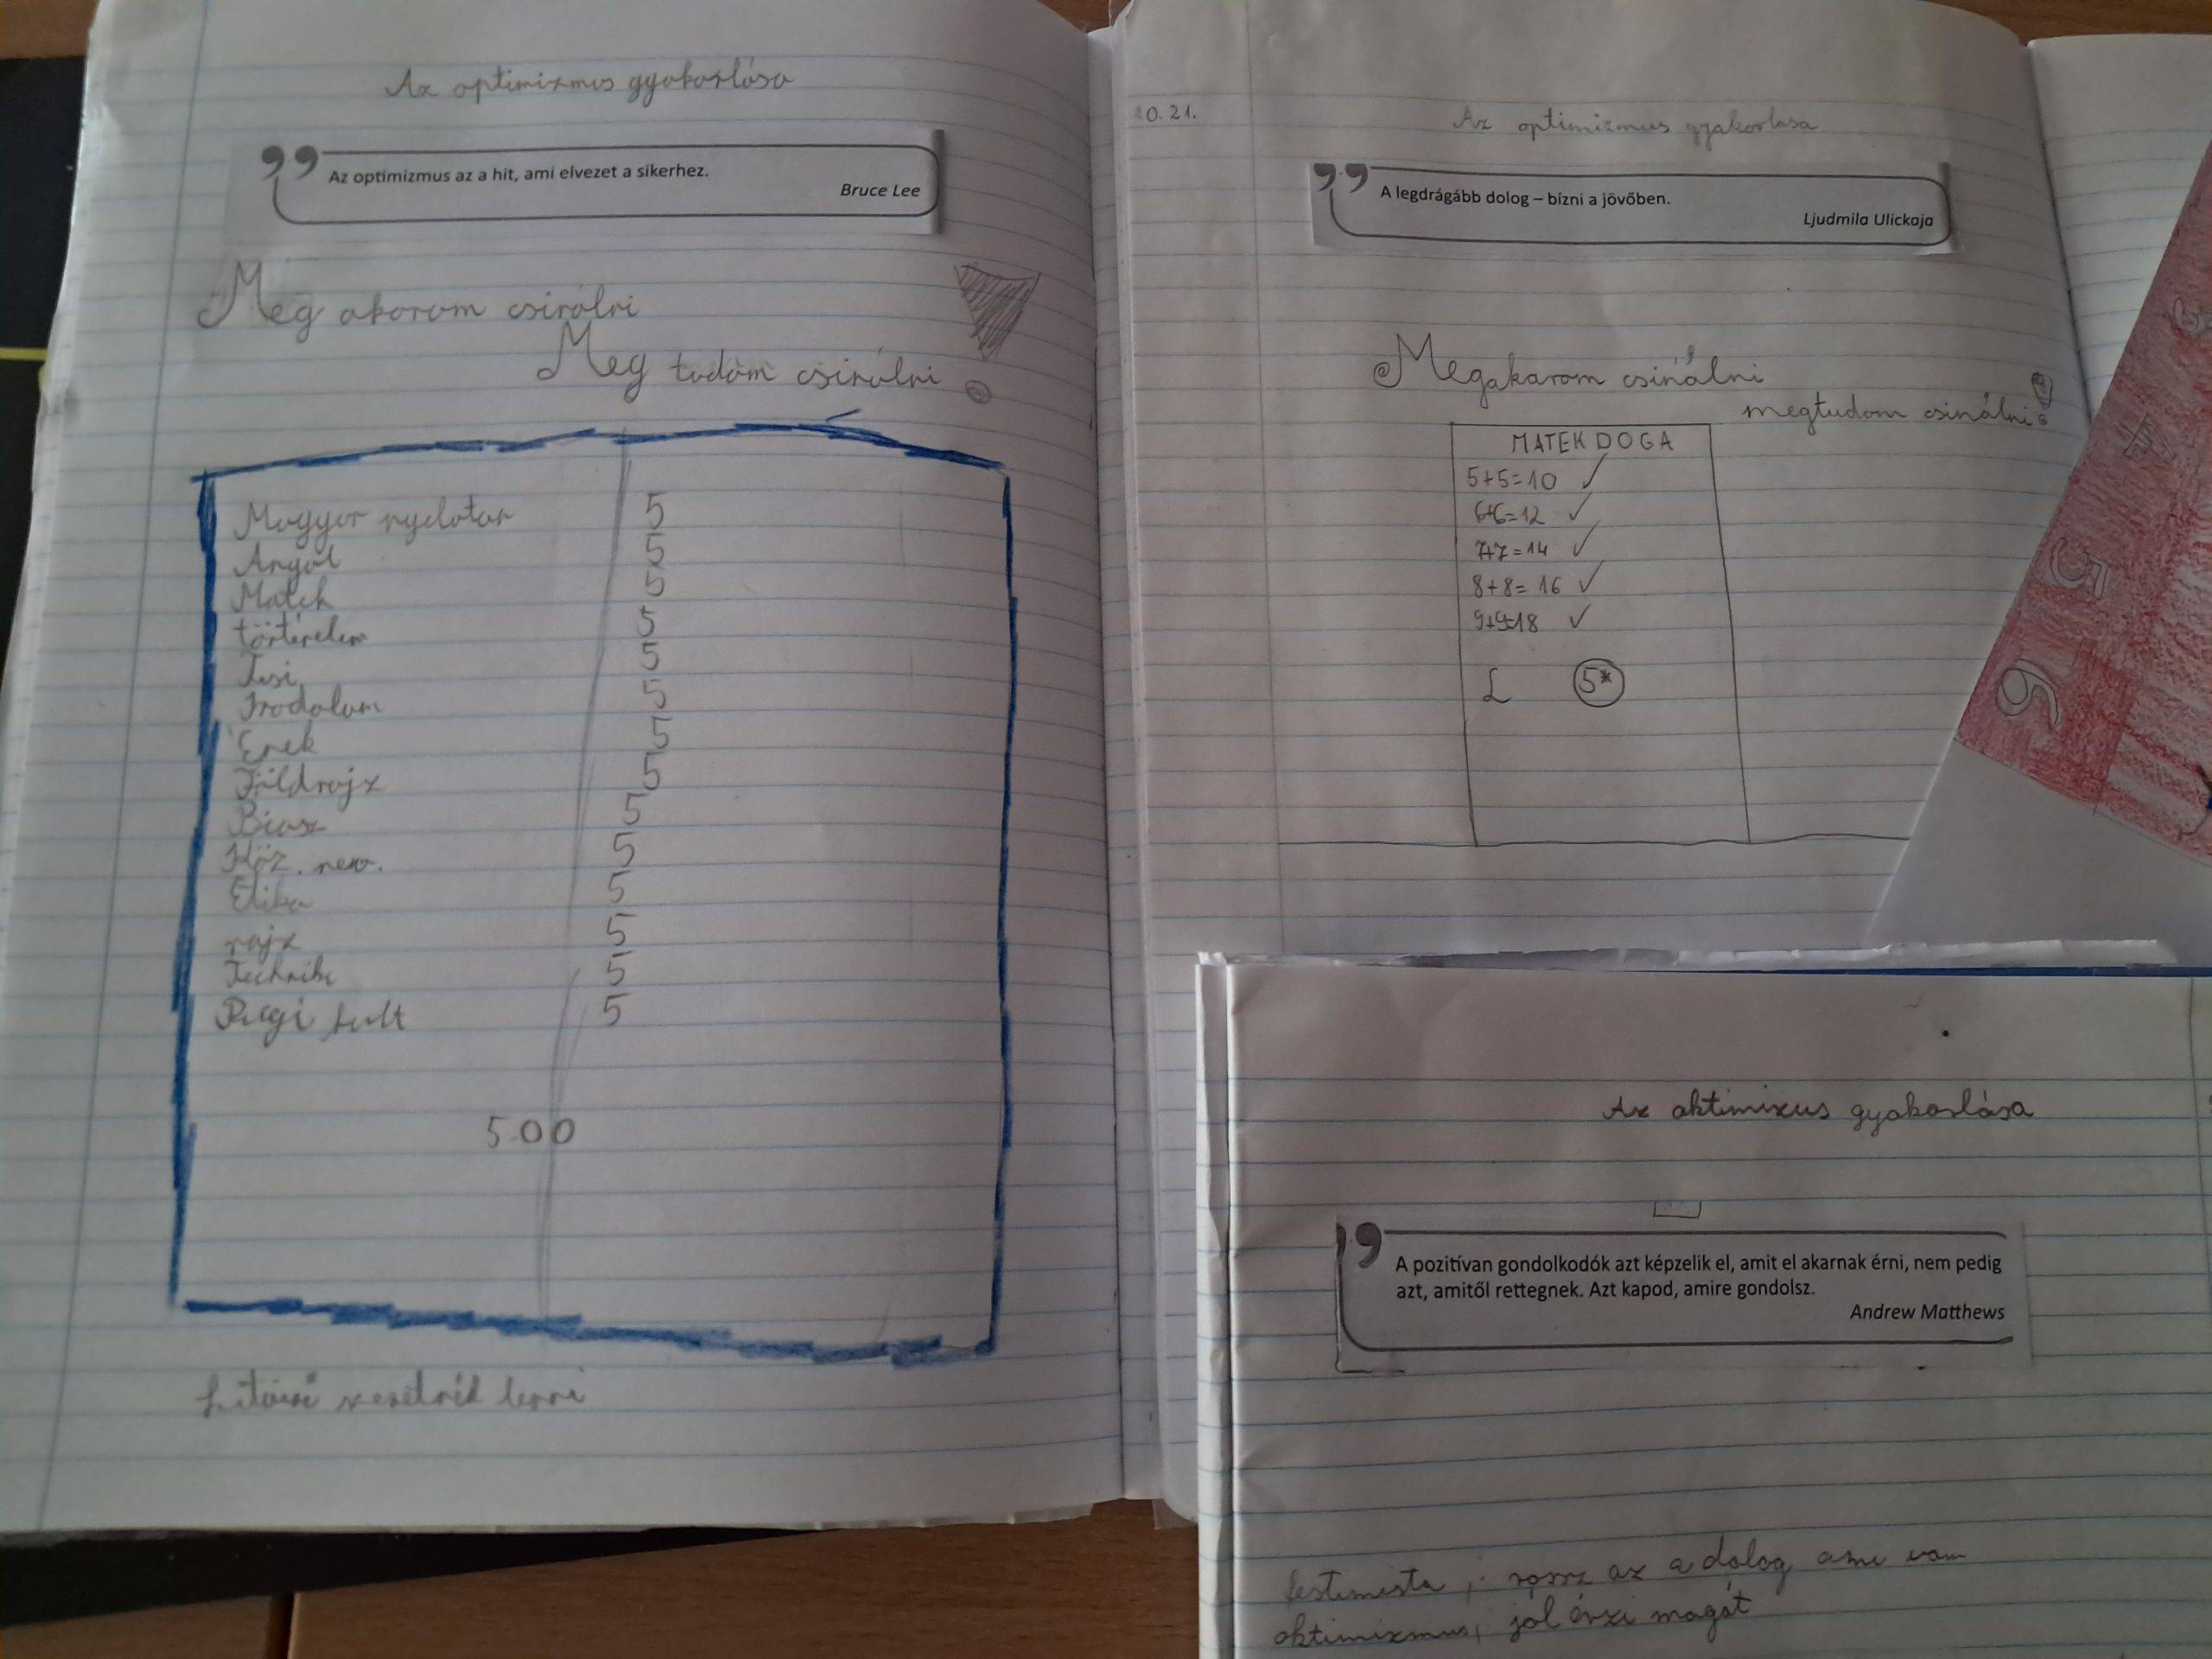 Az optimizmus gyakorlása
Az optimizmus az a hit, ami elvezet a sikerhez.
Bruce Lee
Meg akarom csinálni
Meg tudom csinálni
Magyar nyelvtan 5
Angol 5
Matek 5
történelem 5
Tesi 5
Irodalom 5
Ének 5
Földrajz 5
Biosz 5
5
Etika 5
rajz 5
Technika 5
5
500
lenni
10.21.
Az optimizmus gyakorlása
A legdrágább dolog – bízni a jövőben.
Ljudmila Ulickaja
Megakarom csinálni
megtudom csinálni
MATEK DOGA
5+5=10 ✓
6+6=12 ✓
7+7=14 ✓
8+8=16 ✓
9+9=18 ✓
5*
5
6
Az oktimixus gyakorlása
A pozitívan gondolkodók azt képzelik el, amit el akarnak érni, nem pedig
azt, amitől rettegnek. Azt kapod, amire gondolsz.
Andrew Matthews
rossz az a dolog ami van
oktimixmus, jól érzi magát